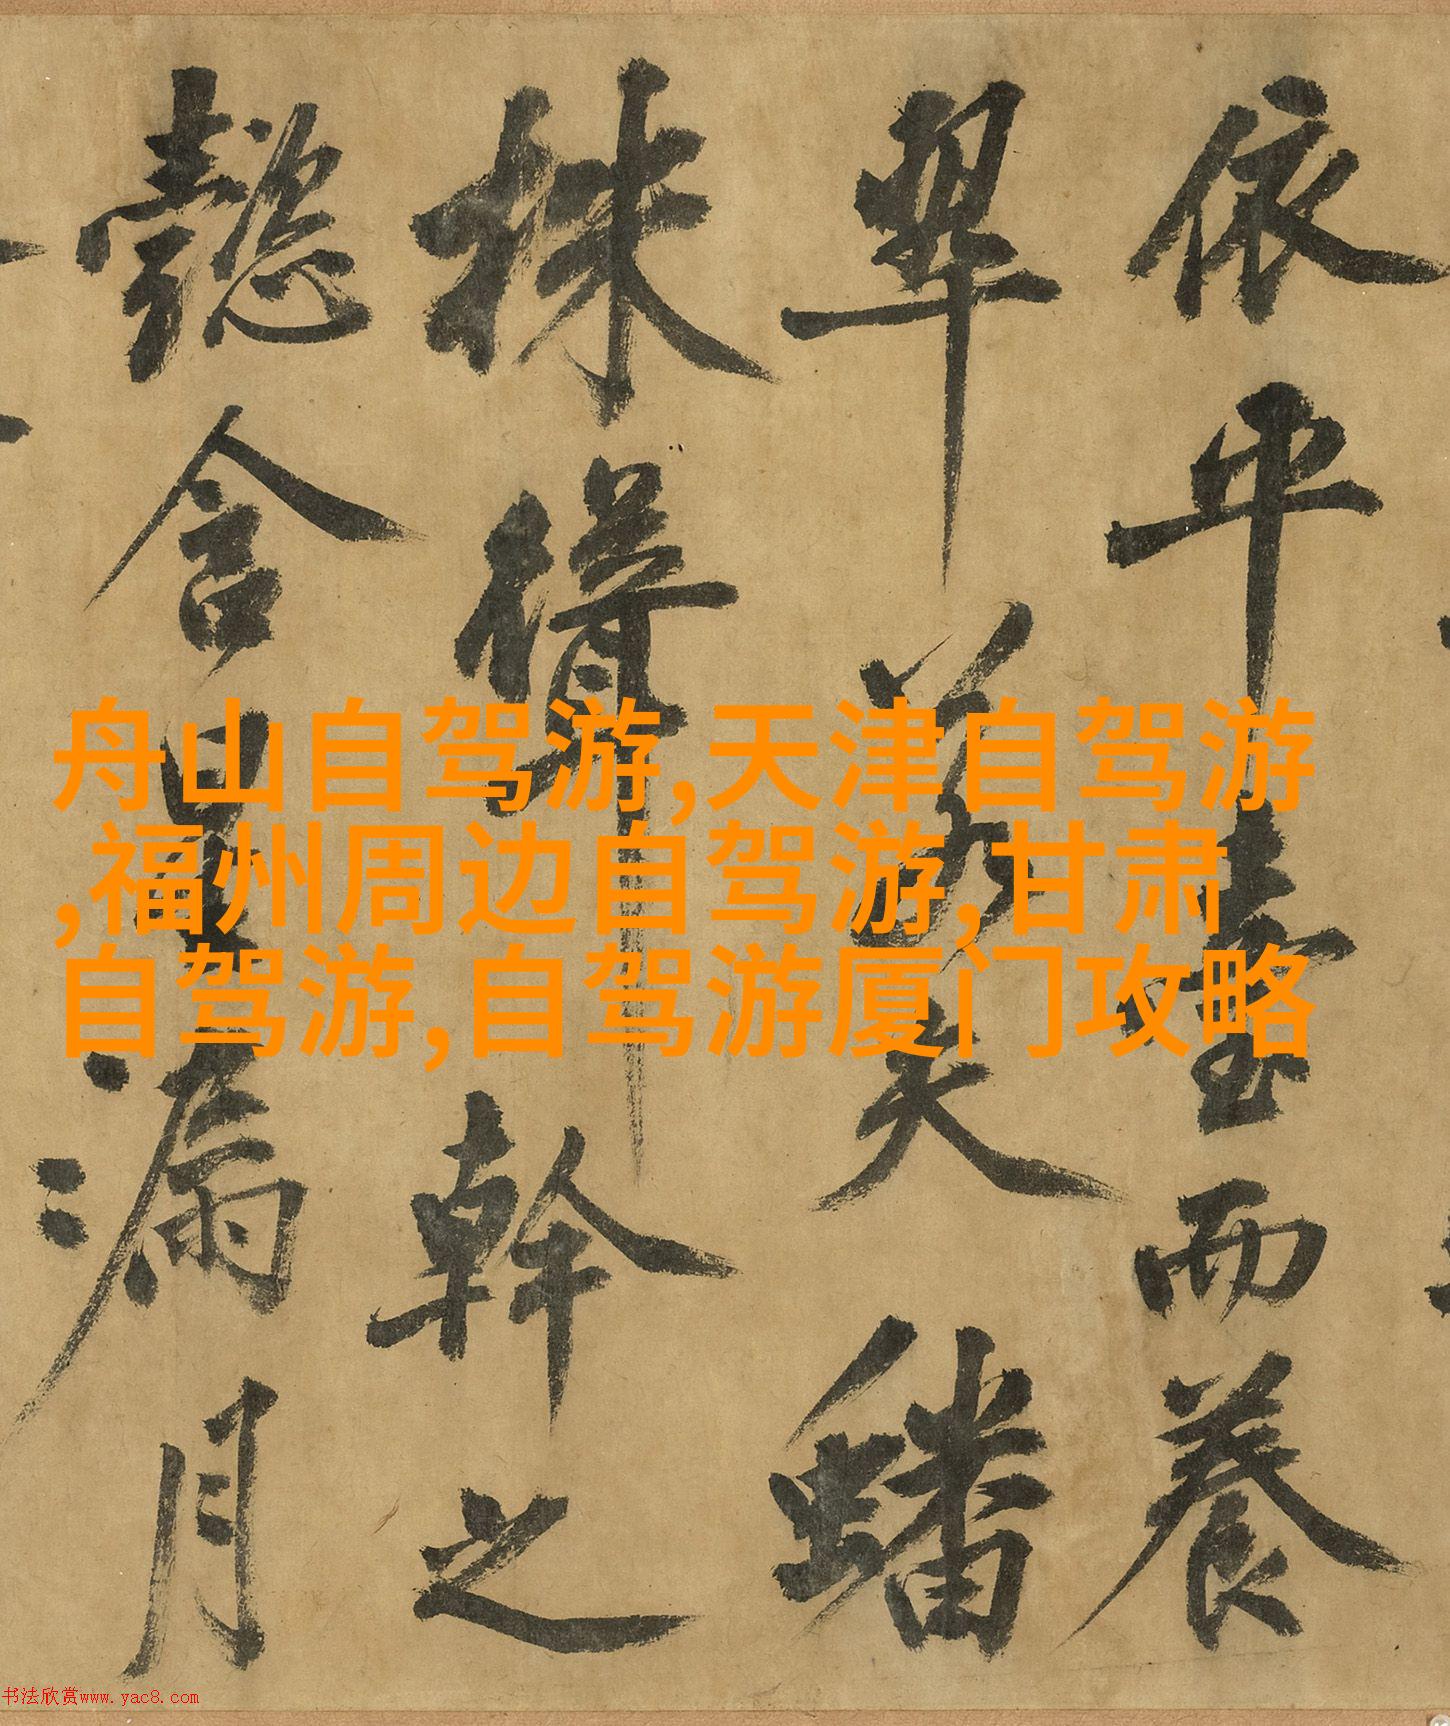 依平臺而養
翠若夫蟠
株聳幹之
懿含星漏月
舟山自驾游,天津自驾游
,福州周边自驾游,甘肃
自驾游,自驾游厦门攻略
书法欣赏www.yac8.com